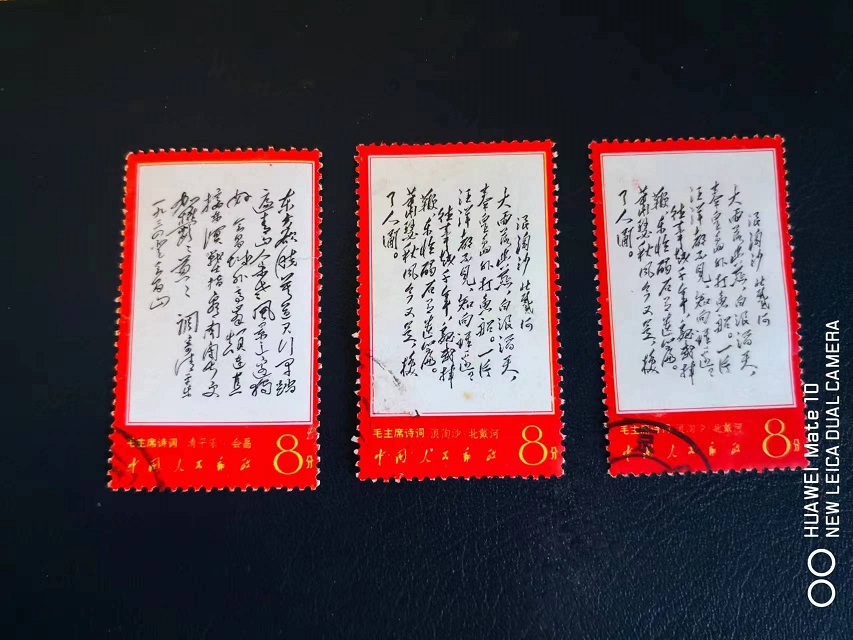 东方欲晓莫道君行早踏
遍青山人未老风景这边独
好会昌城外高峰颠连直
接东溟战士指看南粤更
加郁々葱々 调寄清平乐
毛主席诗词 清平乐 会昌
中国人民邮政
8分
浪淘沙 北戴河
大雨落幽燕,白浪滔天,
秦皇岛外打鱼船。一片
汪洋都不见,知向谁边?
往事越千年,魏武挥
鞭,东临碣石有遗篇。
萧瑟秋风今又是,换
了人间。
毛主席诗词 浪淘沙 北戴河
中国人民邮政
8分
浪淘沙 北戴河
大雨落幽燕,白浪滔天,
秦皇岛外打鱼船。一片
汪洋都不见,知向谁边?
往事越千年,魏武挥
鞭,东临碣石有遗篇。
萧瑟秋风今又是,换
了人间。
毛主席诗词 浪淘沙 北戴河
中国人民邮政
8分
HUAWEI Mate 10
NEW LEICA DUAL CAMERA